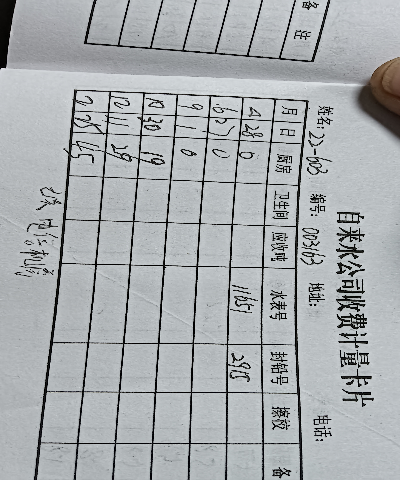 备注
自来水公司收费计量卡片
姓名: 22-603 编号: 003163 地址: 电话:
月 日 厨房 卫生间 应收吨 水表号 封铅号 接校 备
4 28 0 11651 2915
6 27 0
9 1 0
10 30 19
12 11 29
2 25 45